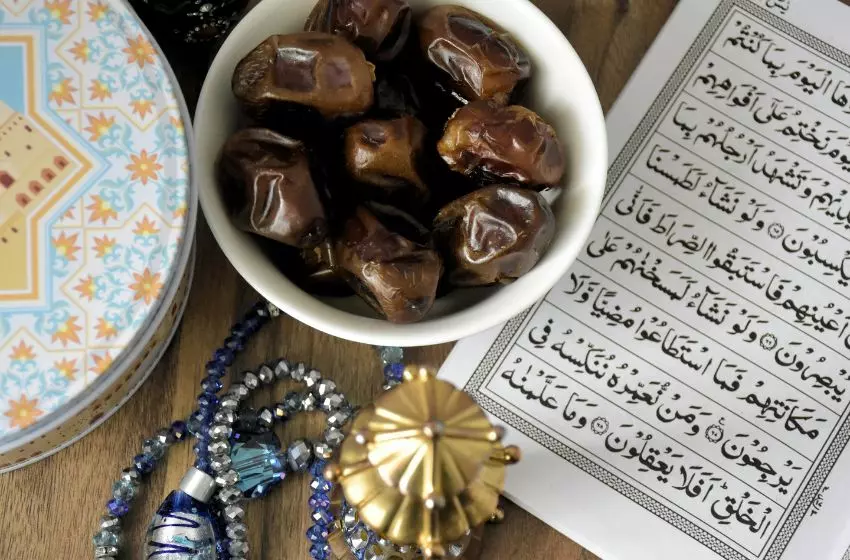 الْيَوْمَ بِمَا كُنْتُمْ
نَخْتِمُ عَلٰٓى اَفْوَاهِهِمْ
وَتَشْهَدُ اَرْجُلُهُمْ بِمَا
يَكْسِبُوْنَ ۝٦٥ وَلَوْ نَشَآءُ لَطَمَسْنَا
اَعْيُنِهِمْ فَاسْتَبَقُوا الصِّرَاطَ فَاَنّٰى
يُبْصِرُوْنَ ۝٦٦ وَلَوْ نَشَآءُ لَمَسَخْنٰهُمْ عَلٰى
مَكَانَتِهِمْ فَمَا اسْتَطَاعُوْا مُضِيًّا وَّلَا
يَرْجِعُوْنَ ۝٦٧ وَمَنْ نُّعَمِّرْهُ نُنَكِّسْهُ فِى
الْخَلْقِ ؕ اَفَلَا يَعْقِلُوْنَ ۝٦٨ وَمَا عَلَّمْنٰهُ